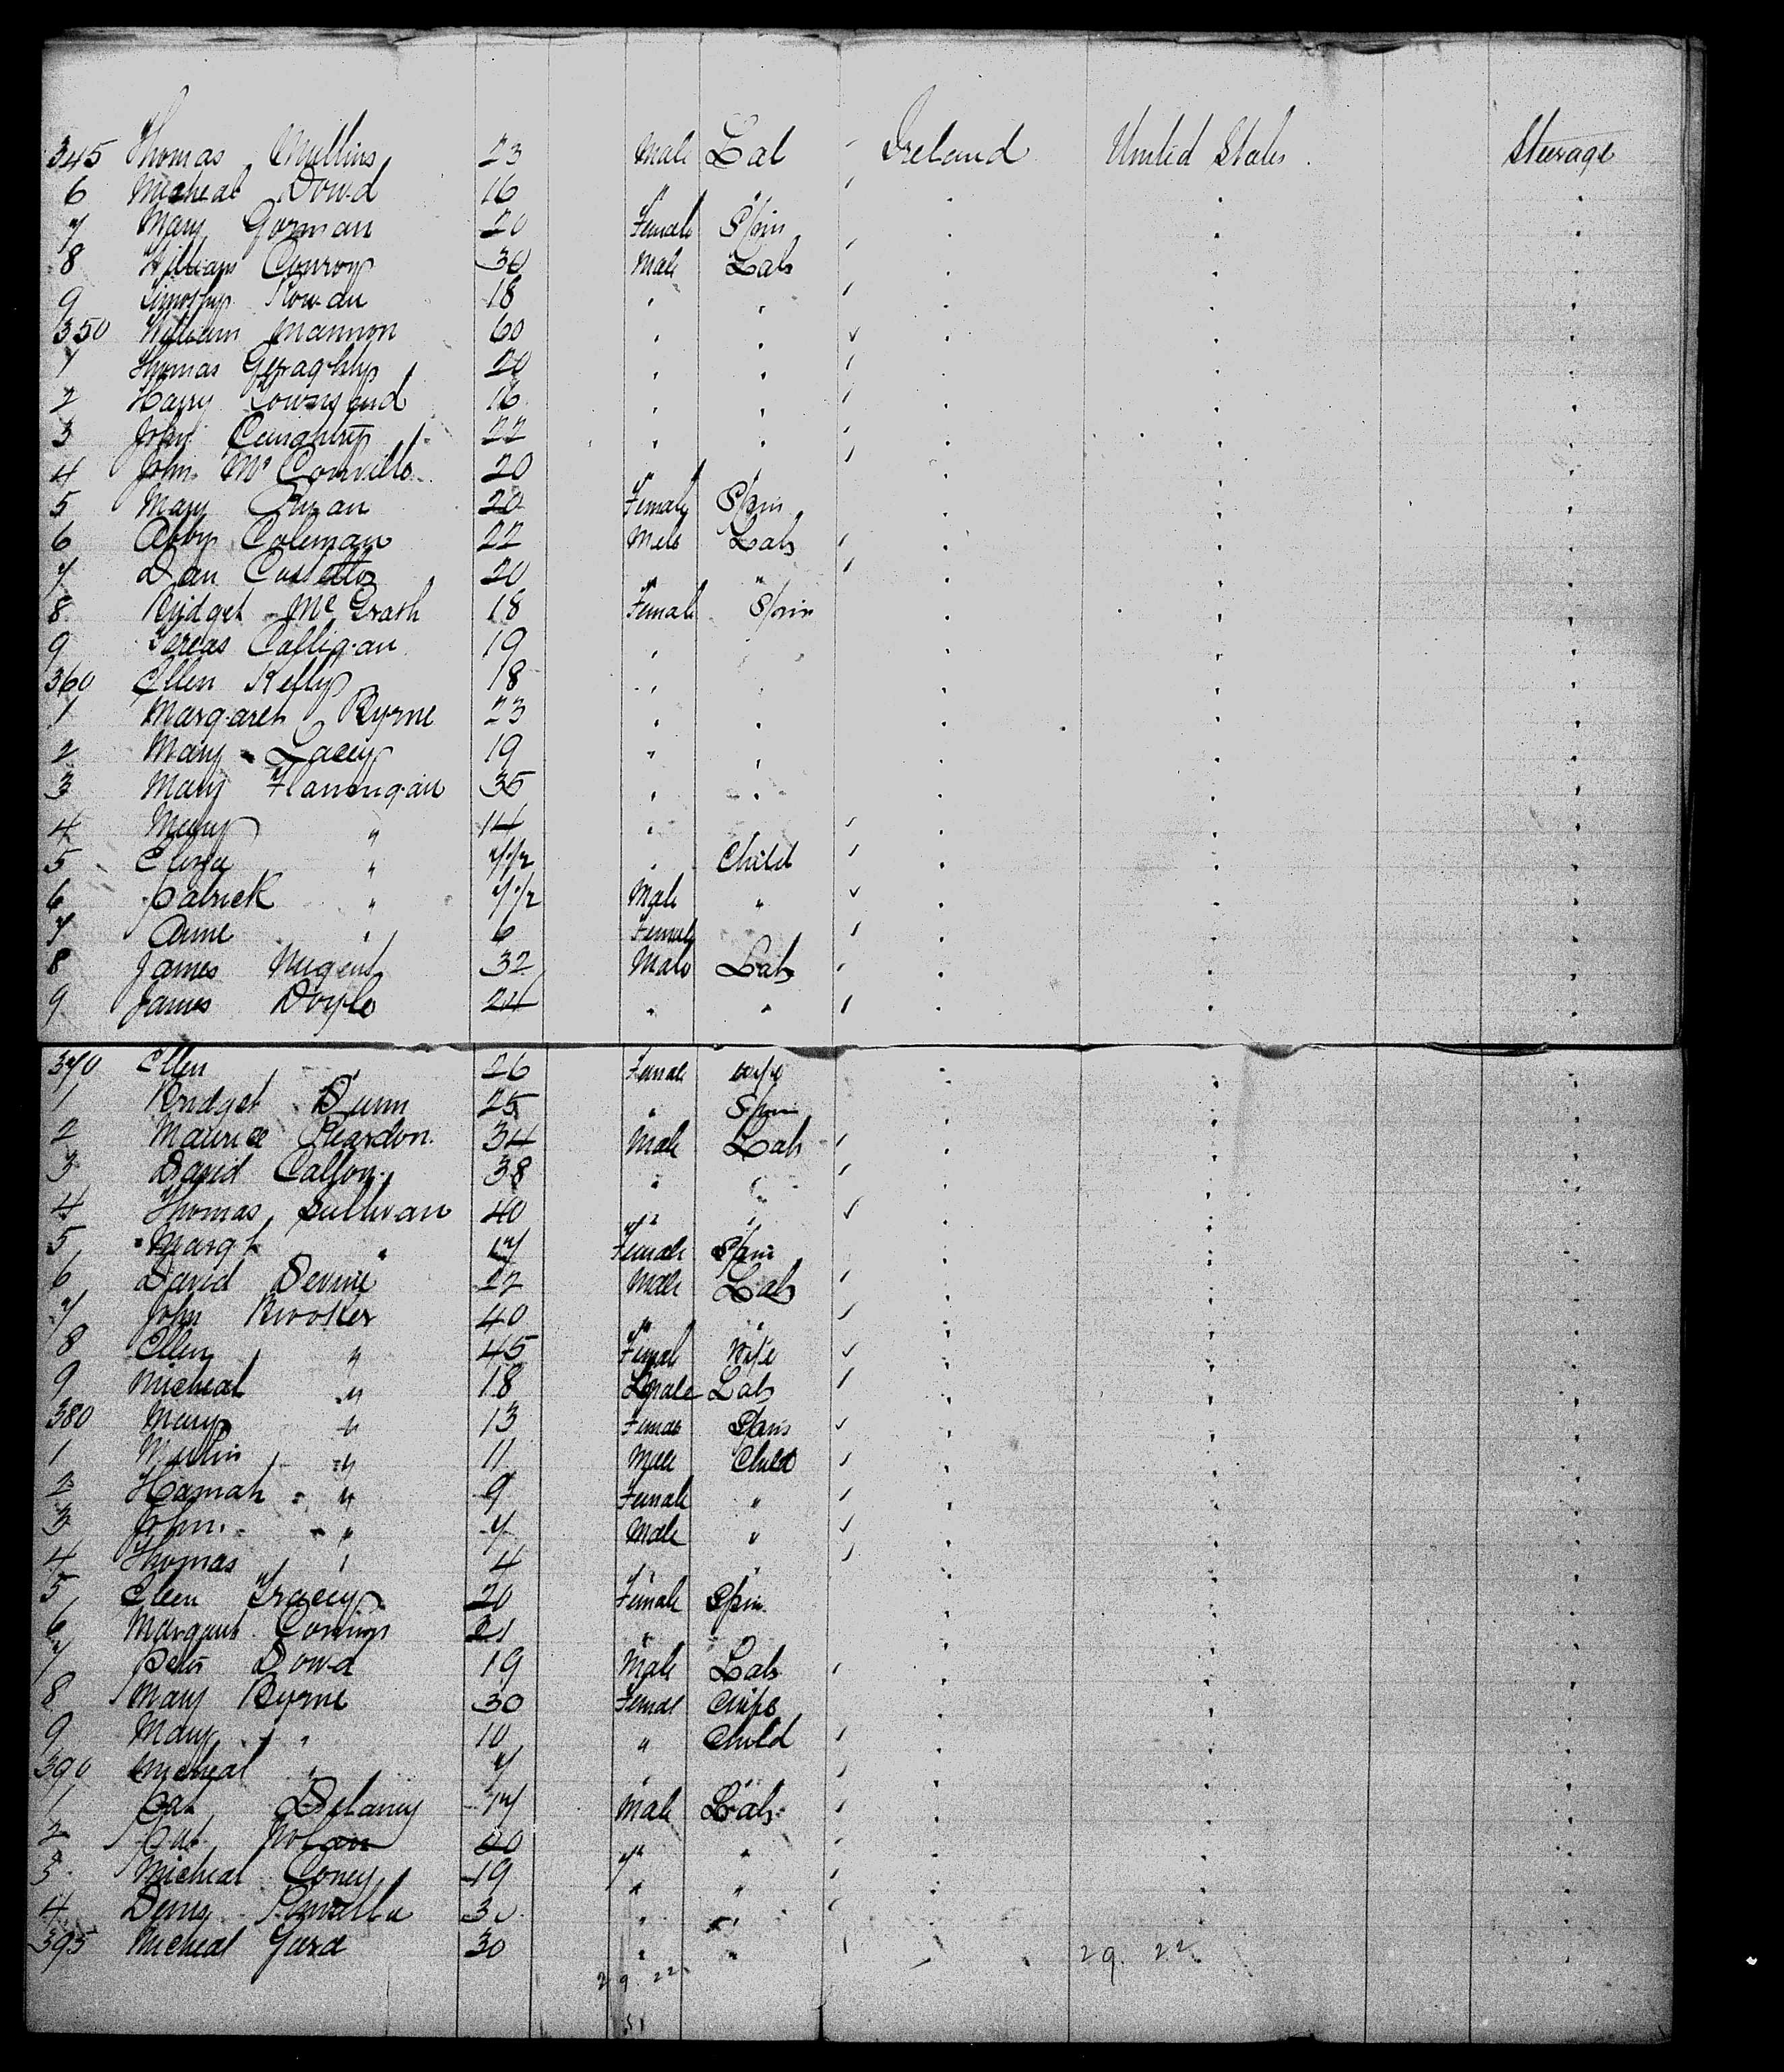 345 Thomas Mullins 23 Male Lab Ireland United States Steerage
6 Micheal Dowd 16 " "
7 Mary Gorman 20 Female Spin
8 William Conroy 30 Male Lab
9 Timothy Rowan 18 " "
350 William Mannon 60 " "
1 Thomas Geraghty 20 " "
2 Harry Townsend 16 " "
3 John 22 " "
4 John McConville 20 " "
5 Mary 20 Female Spin
6 Abby Coleman 22 Male Lab
7 Dan Costello 20 " "
8 Bridget McGrath 18 Female Spin
9 Calligan 19 "
360 Ellen Kelly 18 " "
1 Margaret Byrne 23 " "
2 Mary Lacey 19 " "
3 Mary Flannigan 35 " "
4 Mary " 14 "
5 Eliza " Child
6 Patrick " Male "
7 Anne " 6 Female
8 James Nugent 32 Male Lab
9 James Doyle 24 " "
370 Ellen " 26 Female wife
1 Bridget Dunn 25 " Spin
2 Maurice Reardon 34 Male Lab
3 David 38 " "
4 Thomas Sullivan 40 " "
5 Margt " 17 Female Spin
6 David Devine 22 Male Lab
7 John Brooker 40 " "
8 Ellen " 45 Female Wife
9 Micheal " 18 Male Lab
380 Mary " 13 Female Spin
1 Martin " 11 Male Child
2 Hannah " 9 Female "
3 John " 7 Male "
4 Thomas " 4 " "
5 Ellen Tracey 20 Female Spin
6 Margaret 21 " "
7 Peter Dowd 19 Male Lab
8 Mary Byrne 30 Female Wife
9 Mary " 10 " Child
390 Micheal " 7 " "
1 Pat Delaney 17 Male Lab
2 Pat Nolan 20 " "
3 Micheal Coney 19 " "
4 Denis 30 " "
395 Micheal 30 " "
29 22 29 22
51